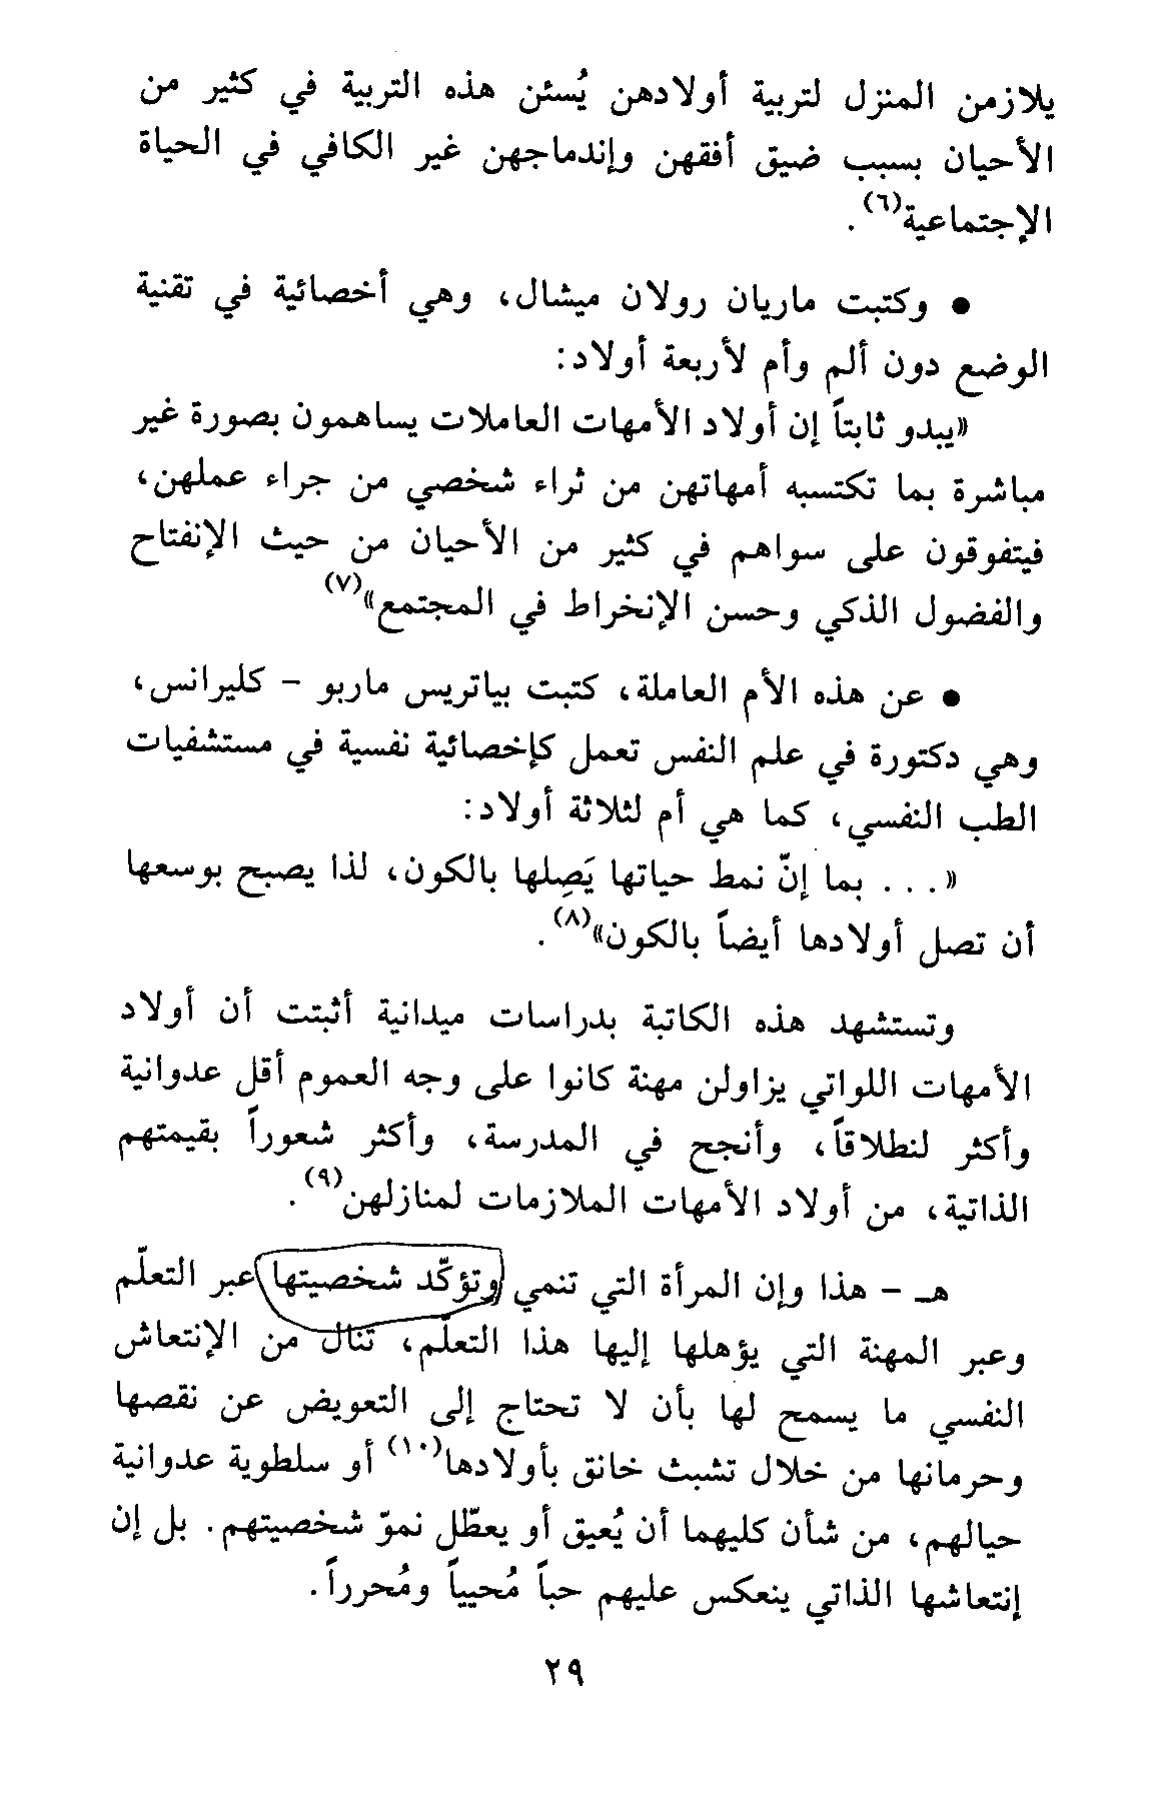 يلازمن المنزل لتربية أولادهن يُسئن هذه التربية في كثير من
الأحيان بسبب ضيق أفقهن وإندماجهن غير الكافي في الحياة
الإجتماعية(٦).
● وكتبت ماريان رولان ميشال، وهي أخصائية في تقنية
الوضع دون ألم وأم لأربعة أولاد:
«يبدو ثابتاً إن أولاد الأمهات العاملات يساهمون بصورة غير
مباشرة بما تكتسبه أمهاتهن من ثراء شخصي من جراء عملهن،
فيتفوقون على سواهم في كثير من الأحيان من حيث الإنفتاح
والفضول الذكي وحسن الإنخراط في المجتمع»(٧)
● عن هذه الأم العاملة، كتبت بياتريس ماربو - كليرانس،
وهي دكتورة في علم النفس تعمل كإخصائية نفسية في مستشفيات
الطب النفسي، كما هي أم لثلاثة أولاد:
«... بما إنّ نمط حياتها يَصِلها بالكون، لذا يصبح بوسعها
أن تصل أولادها أيضاً بالكون»(٨).
وتستشهد هذه الكاتبة بدراسات ميدانية أثبتت أن أولاد
الأمهات اللواتي يزاولن مهنة كانوا على وجه العموم أقل عدوانية
وأكثر لنطلاقاً، وأنجح في المدرسة، وأكثر شعوراً بقيمتهم
الذاتية، من أولاد الأمهات الملازمات لمنازلهن(٩).
هـ - هذا وإن المرأة التي تنمي وتؤكّد شخصيتها عبر التعلّم
وعبر المهنة التي يؤهلها إليها هذا التعلّم، تنال من الإنتعاش
النفسي ما يسمح لها بأن لا تحتاج إلى التعويض عن نقصها
وحرمانها من خلال تشبث خانق بأولادها(١٠) أو سلطوية عدوانية
حيالهم، من شأن كليهما أن يُعيق أو يعطّل نموّ شخصيتهم. بل إن
إنتعاشها الذاتي ينعكس عليهم حباً مُحيياً ومُحرراً.
٢٩